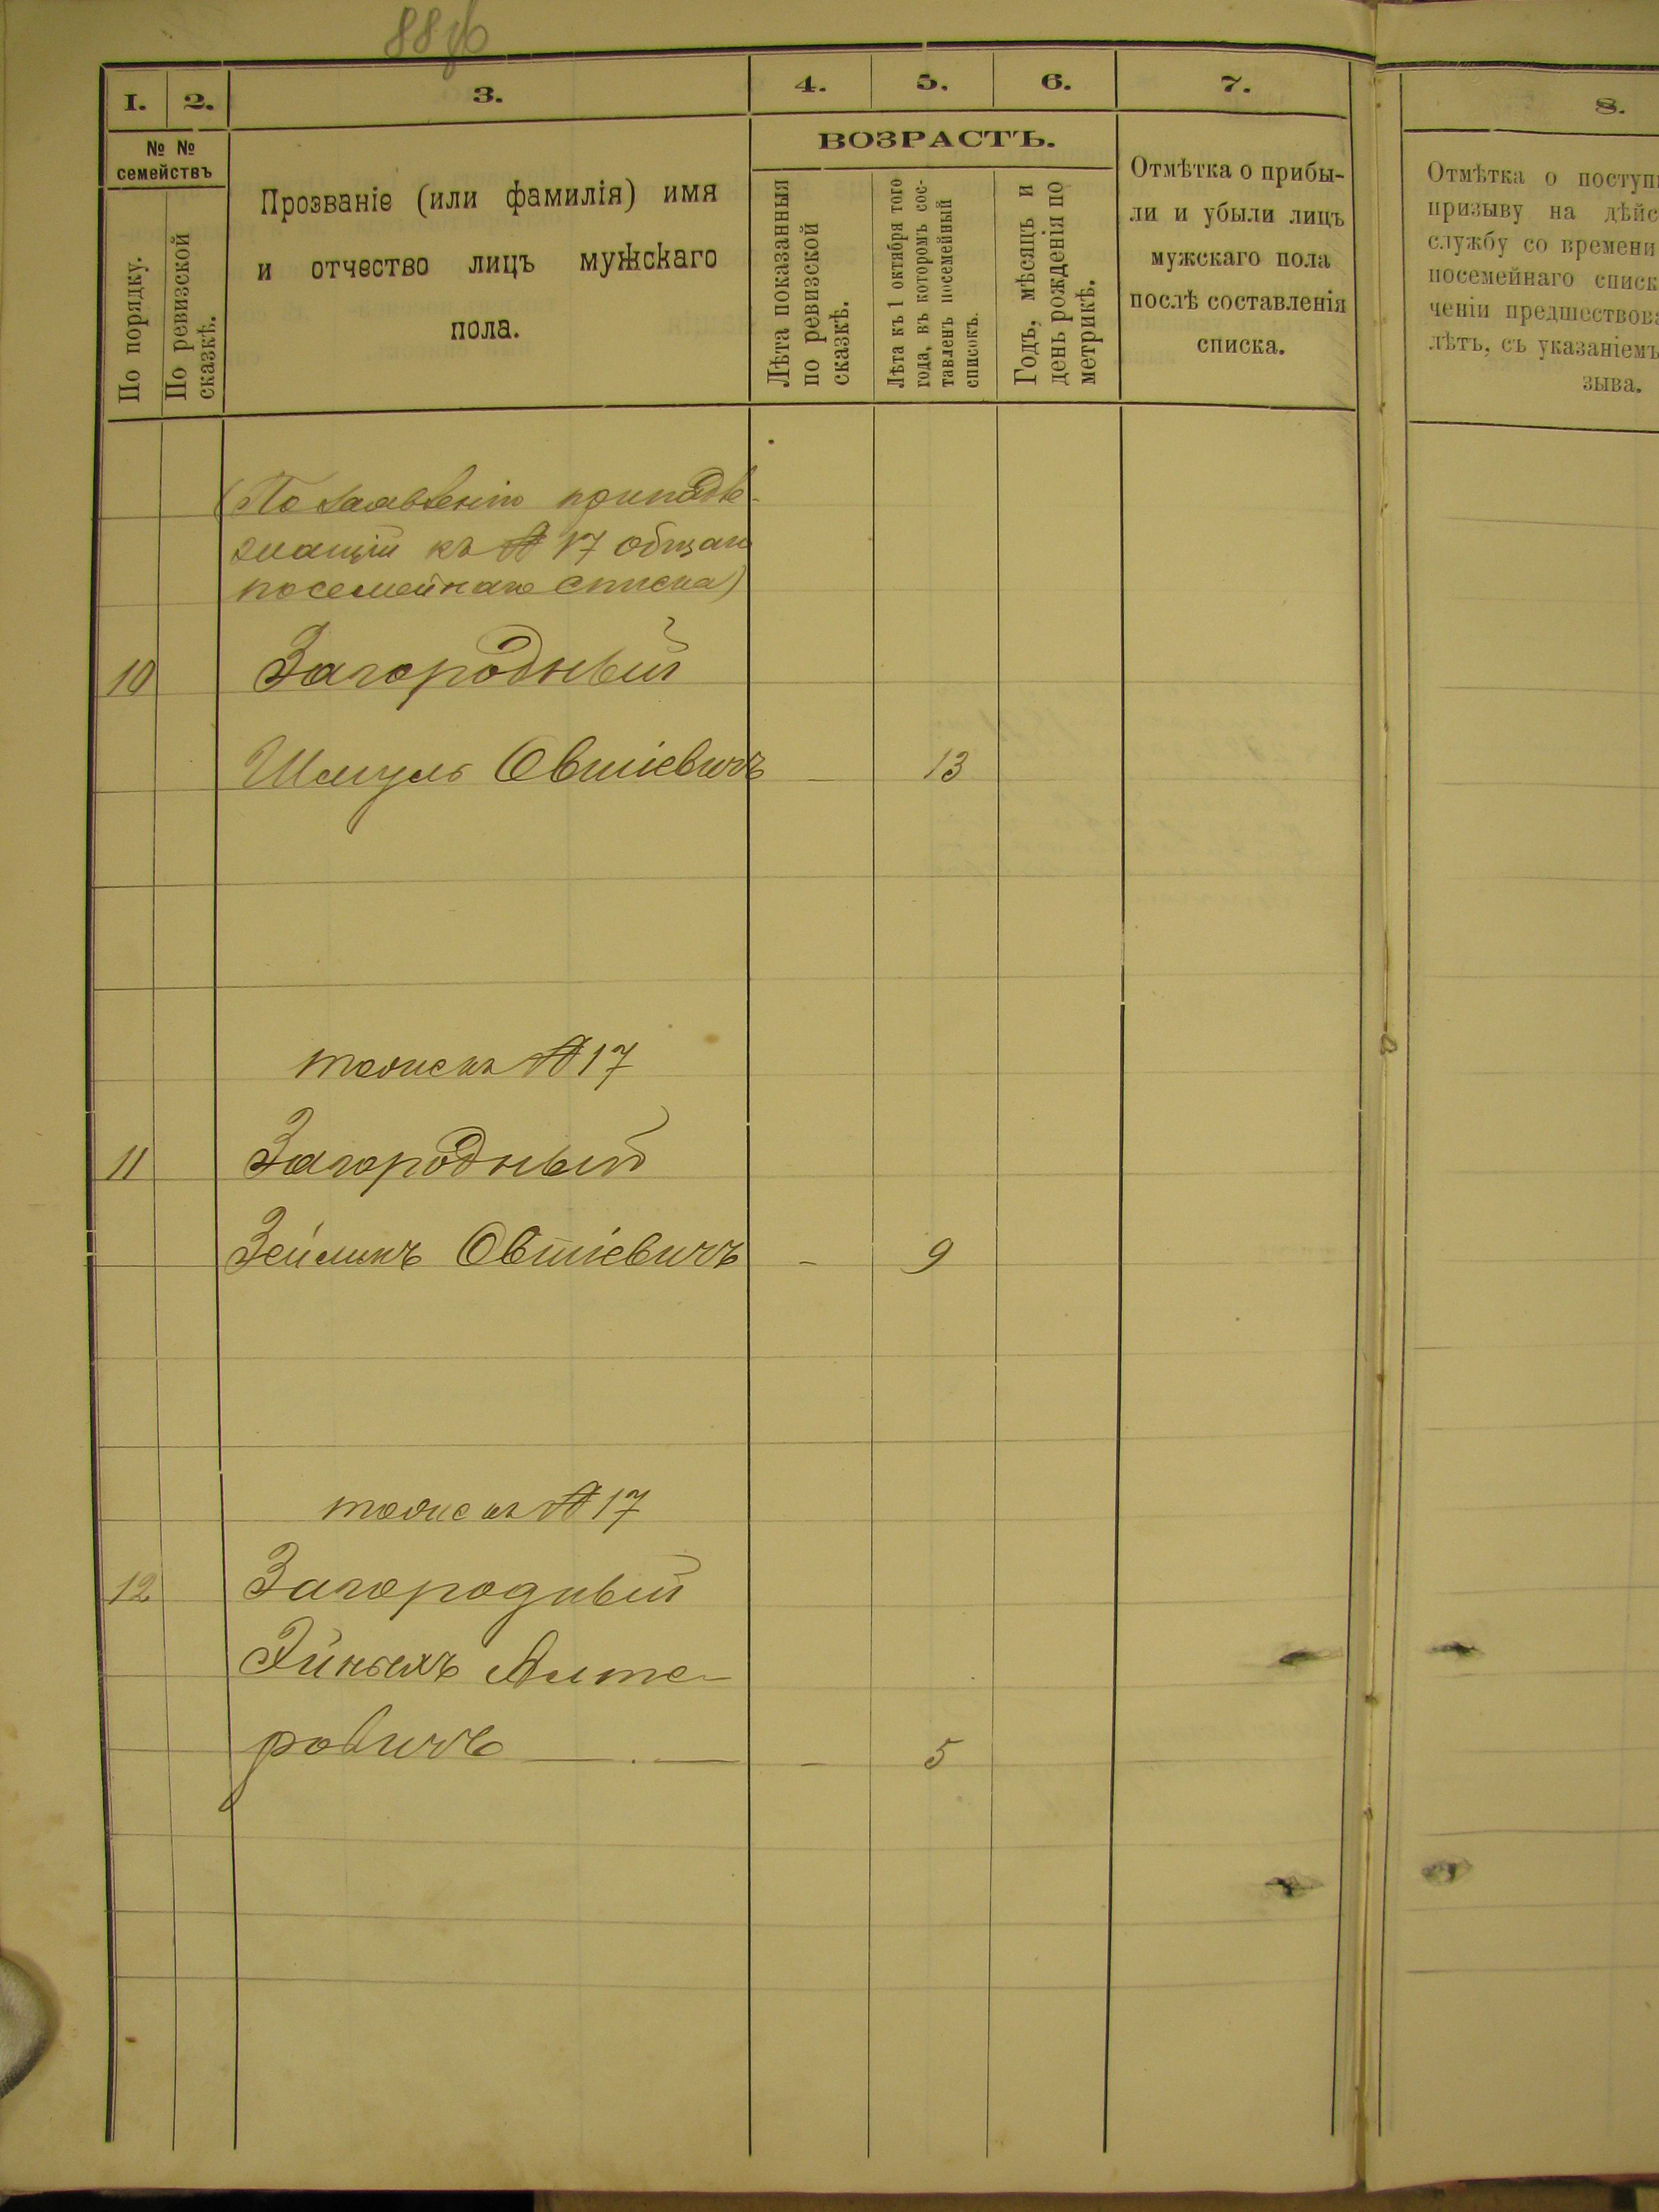 88об
1.
2.
3.
4.
5.
6.
7.
8.
№ №
семействъ
По порядку.
По ревизской
сказкѣ.
Прозваніе (или фамилія) имя
и отчество лицъ мужскаго
пола.
ВОЗРАСТЪ.
Лѣта показанныя
по ревизской
сказкѣ.
Лѣта къ 1 октября того
года, въ которомъ сос-
тавленъ посемейный
списокъ.
Годъ, мѣсяцъ и
день рожденія по
метрикѣ.
Отмѣтка о прибы-
ли и убыли лицъ
мужскаго пола
послѣ составленія
списка.
Отмѣтка о поступ
призыву на дѣйс
службу со времени
посемейнаго списк
ченіи предшествова
лѣтъ, съ указаніемъ
зыва.
(По заявленію принадле-
жащій къ № 17 общаго
посемейнаго списка)
10 Загородный
Шмуль Овшіевичъ - 13
тоже къ № 17
11 Загородный
Зейликъ Овшіевичъ - 9
тоже къ № 17
12 Загородный
Эйныхъ Алте-
ровичъ — . — - 5